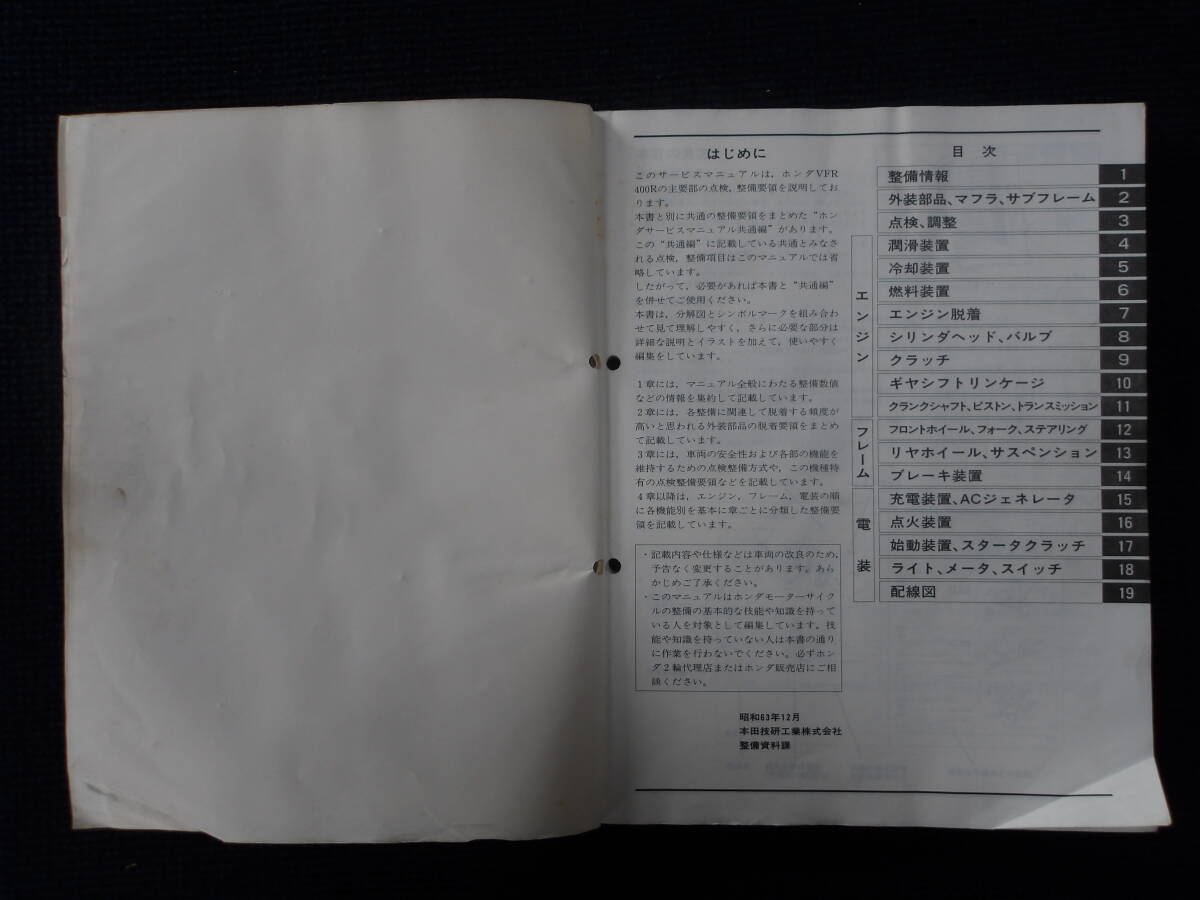 はじめに
このサービスマニュアルは，ホンダVFR
400Rの主要部の点検，整備要領を説明してお
ります。
本書と別に共通の整備要領をまとめた“ホン
ダサービスマニュアル共通編”があります。
この“共通編”に記載している共通とみなさ
れる点検，整備項目はこのマニュアルでは省
略しています。
したがって，必要があれば本書と“共通編”
を併せてご使用ください。
本書は，分解図とシンボルマークを組み合わ
せて見て理解しやすく，さらに必要な部分は
詳細な説明とイラストを加えて，使いやすく
編集をしています。
1章には，マニュアル全般にわたる整備数値
などの情報を集約して記載しています。
2章には，各整備に関連して脱着する頻度が
高いと思われる外装部品の脱着要領をまとめ
て記載しています。
3章には，車両の安全性および各部の機能を
維持するための点検整備方式や，この機種特
有の点検整備要領などを記載しています。
4章以降は，エンジン，フレーム，電装の順
に各機能別を基本に章ごとに分類した整備要
領を記載しています。
・記載内容や仕様などは車両の改良のため，
予告なく変更することがあります。あら
かじめご了承ください。
・このマニュアルはホンダモーターサイク
ルの整備の基本的な技能や知識を持って
いる人を対象として編集しています。技
能や知識を持っていない人は本書の通り
に作業を行わないでください。必ずホン
ダ2輪代理店またはホンダ販売店にご相
談ください。
昭和63年12月
本田技研工業株式会社
整備資料課
目次
整備情報 1
外装部品、マフラ、サブフレーム 2
点検、調整 3
エンジン
潤滑装置 4
冷却装置 5
燃料装置 6
エンジン脱着 7
シリンダヘッド、バルブ 8
クラッチ 9
ギヤシフトリンケージ 10
クランクシャフト、ピストン、トランスミッション 11
フレーム
フロントホイール、フォーク、ステアリング 12
リヤホイール、サスペンション 13
ブレーキ装置 14
電装
充電装置、ACジェネレータ 15
点火装置 16
始動装置、スタータクラッチ 17
ライト、メータ、スイッチ 18
配線図 19